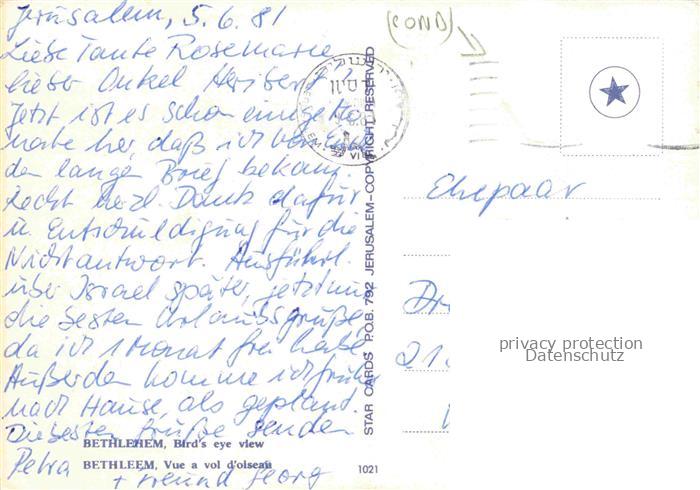 Jerusalem, 5.6.81
Liebe Tante Rosemarie
lieber Onkel Heribert,
Jetzt ist es schon einige Mo
nate her, daß ich von Euch
den langen Brief bekam.
Recht herzl. Dank dafür
u. Entschuldigung für die
Nichtantwort. Ausführl.
über Israel später, jetzt nur
die besten Urlaubsgrüße,
da ich 1 Monat frei habe.
Außerdem komme ich früher
nach Hause, als geplant.
Die besten Grüße senden
Petra + Freund Georg
BETHLEHEM, Bird's eye view
BETHLEEM, Vue a vol d'oiseau
1021
STAR CARDS P.O.B. 792 JERUSALEM–COPYRIGHT RESERVED
Ehepaar
Dr
21
privacy protection
Datenschutz